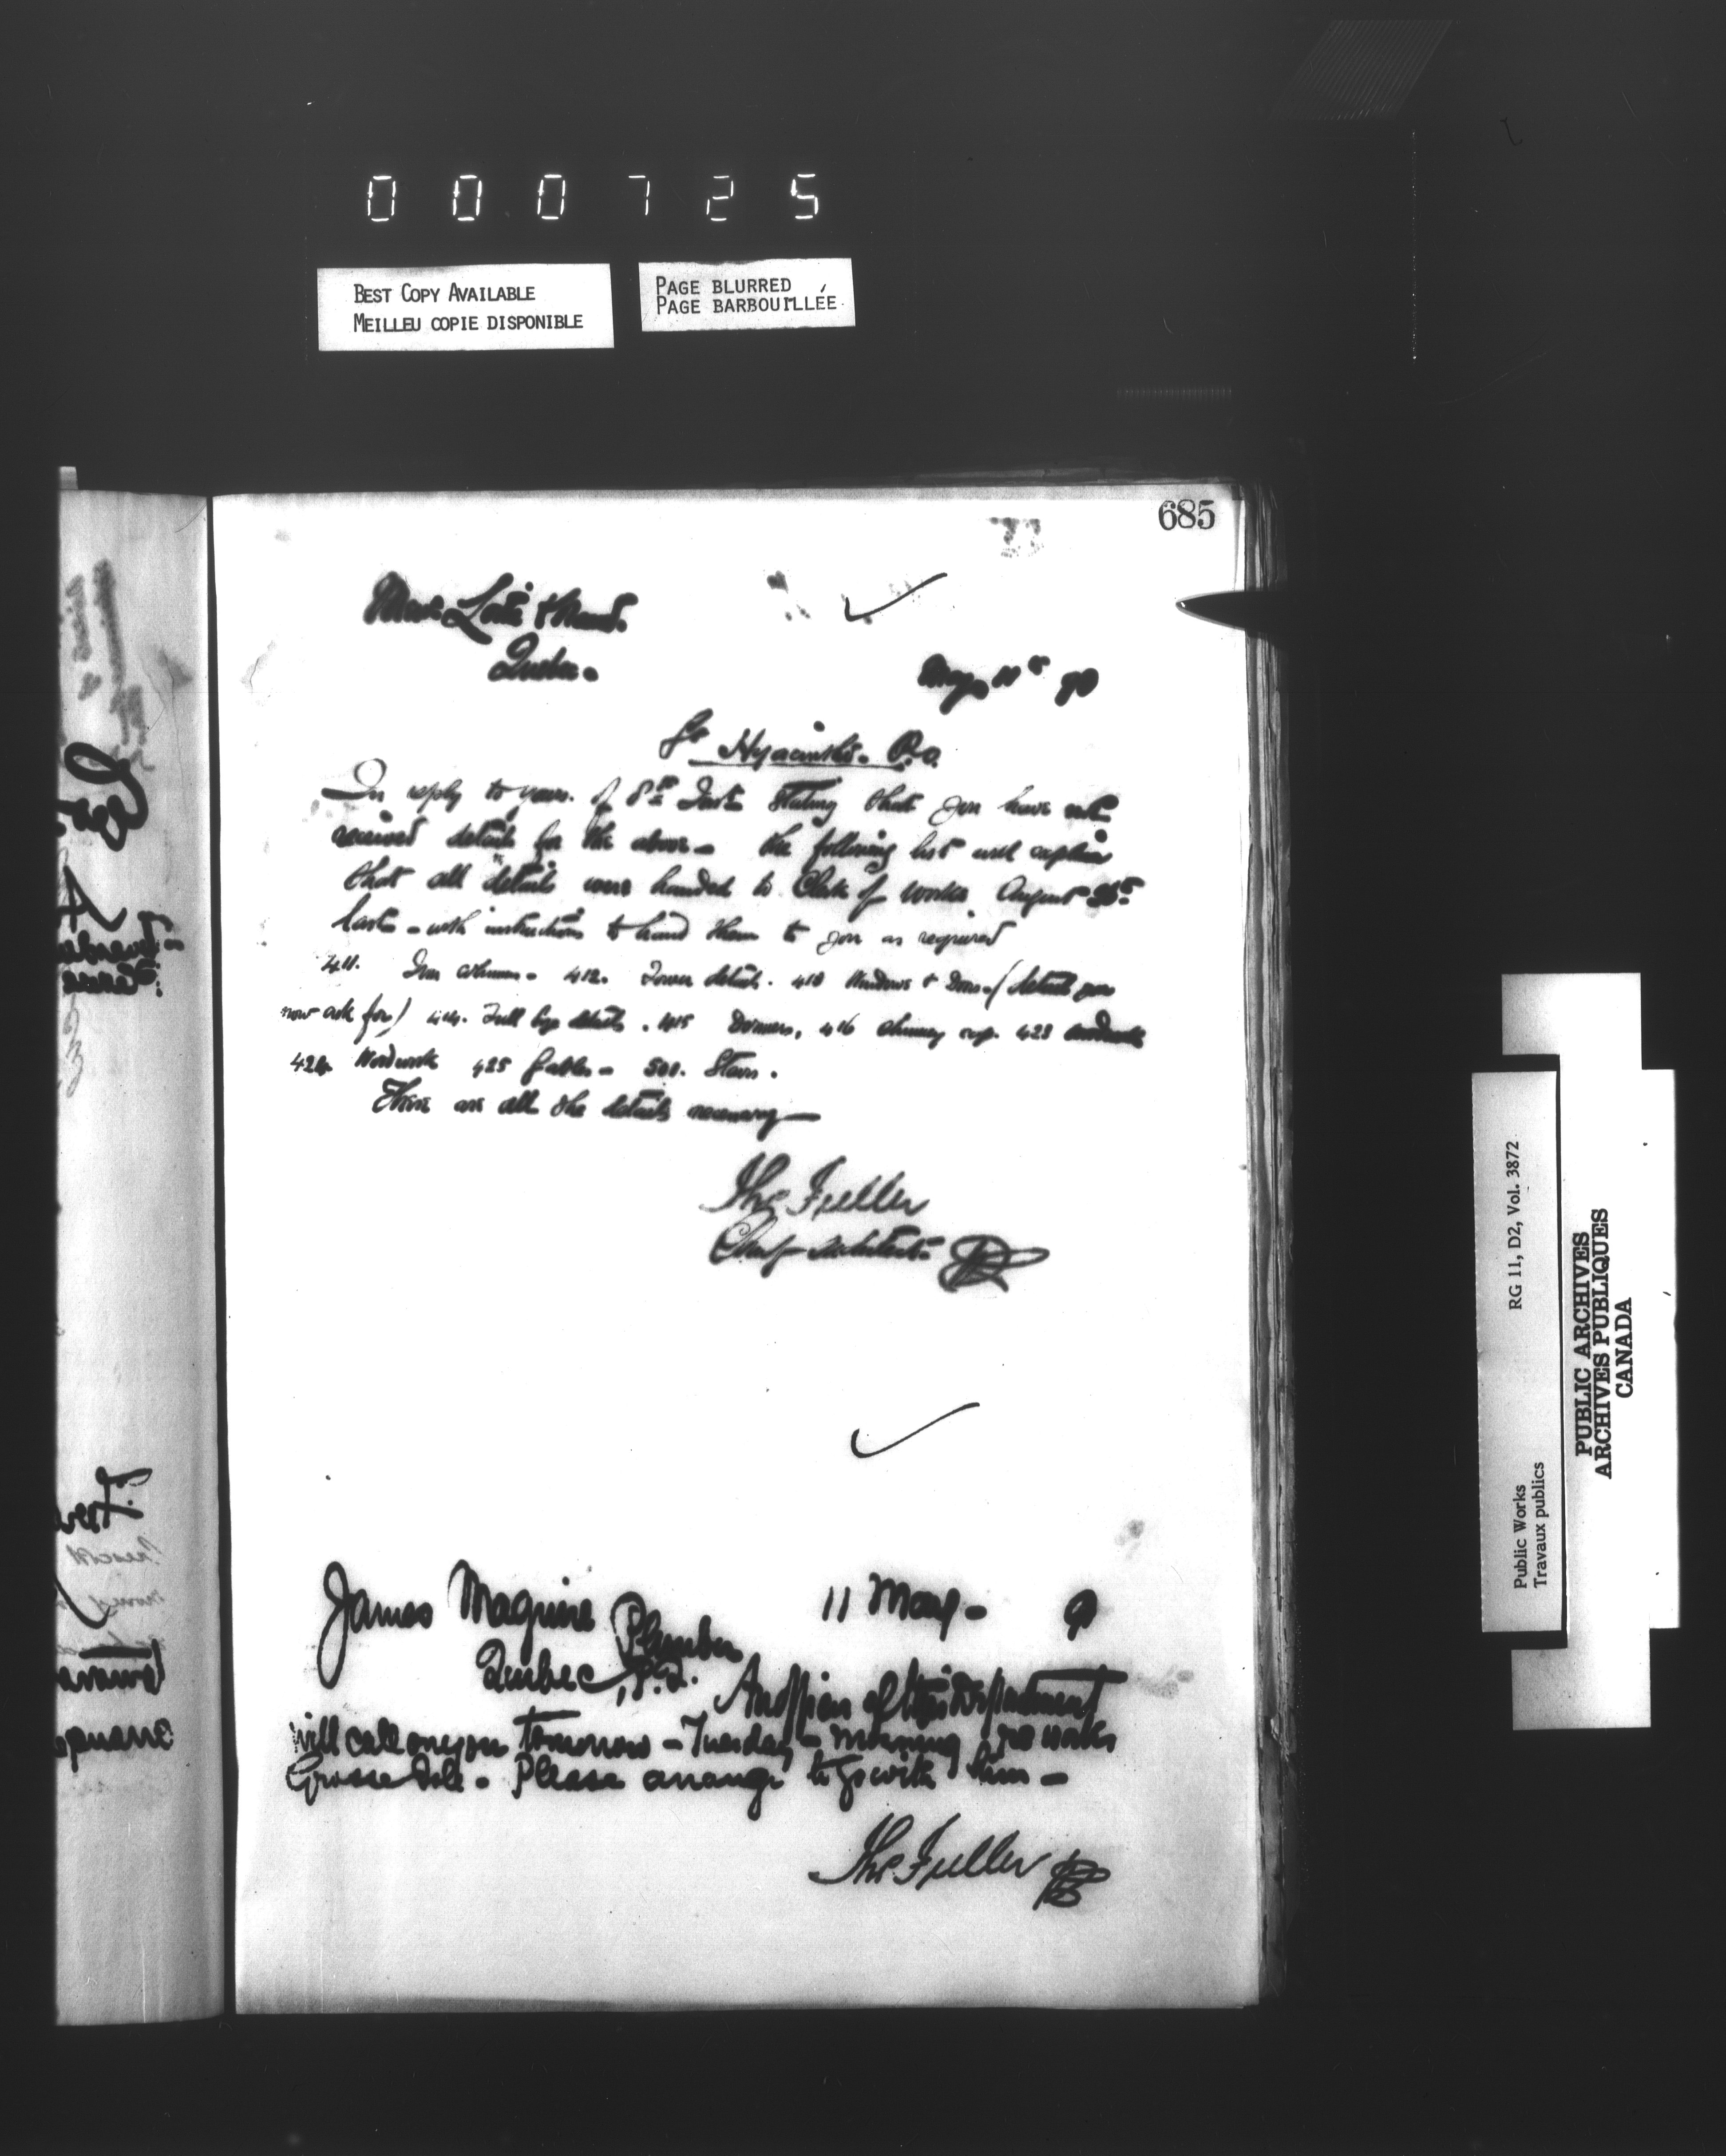 000725
BEST COPY AVAILABLE
MEILLEU COPIE DISPONIBLE
PAGE BLURRED
PAGE BARBOUILLÉE
685
Quebec.
May 11th 90
St Hyacinthe. P.O.
In reply to yours. of 8th Inst stating that you have not
received details for the above - the following list will explain
that all details were handed to Clerk of Works August
last - with instructions to hand them to you as required
411. Iron columns - 412. Tower details. 413 Windows & Doors - (details you
now ask for) 414. Full size details. 415 Dormers, 416 chimney cap. 423 woodwork
424. Woodwork 425 Gables - 501. Stairs.
These are all the details necessary
Thos Fuller
Chief Architect
James Maguire Plumber 11 May - 90
Quebec, P.Q.
An officer of this Department
will call on you tomorrow - Tuesday - morning re works
Grosse Isle. Please arrange to go with him -
Thos Fuller
RG 11, D2, Vol. 3872
Public Works
Travaux publics
PUBLIC ARCHIVES
ARCHIVES PUBLIQUES
CANADA